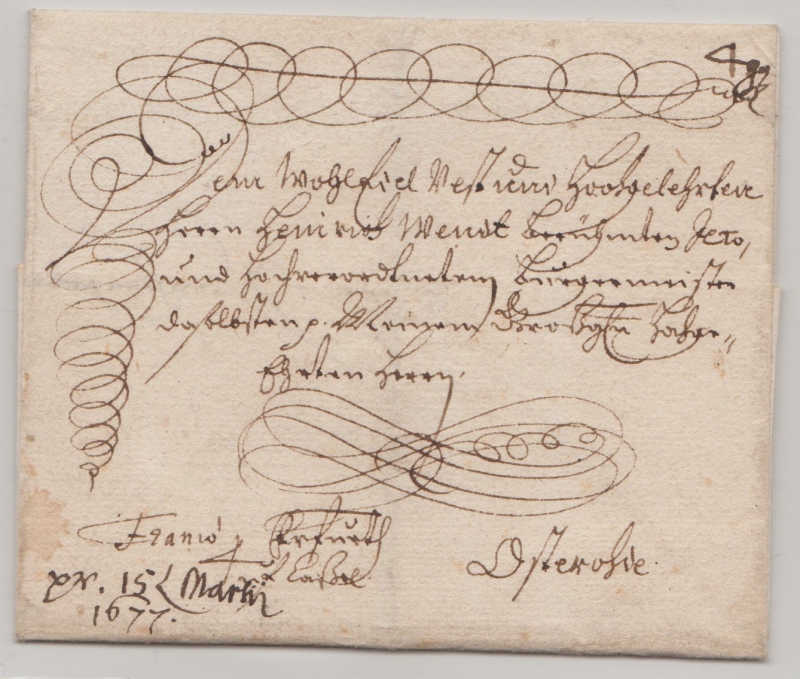 Dem WohlEdel Vest und Hochgelehrten
Herrn Heinrich Wendt berühmten
und Hochverordtneten Bürgermeister
daselbsten p. Meinem Großgn Hochge„
Ehrten Herrn.
Franco p Erfurth
et Caßel.
Osterohde.
pr. 15 Martij
1677.